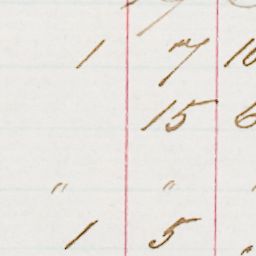 1 7 10
15 6
" " "
1 5